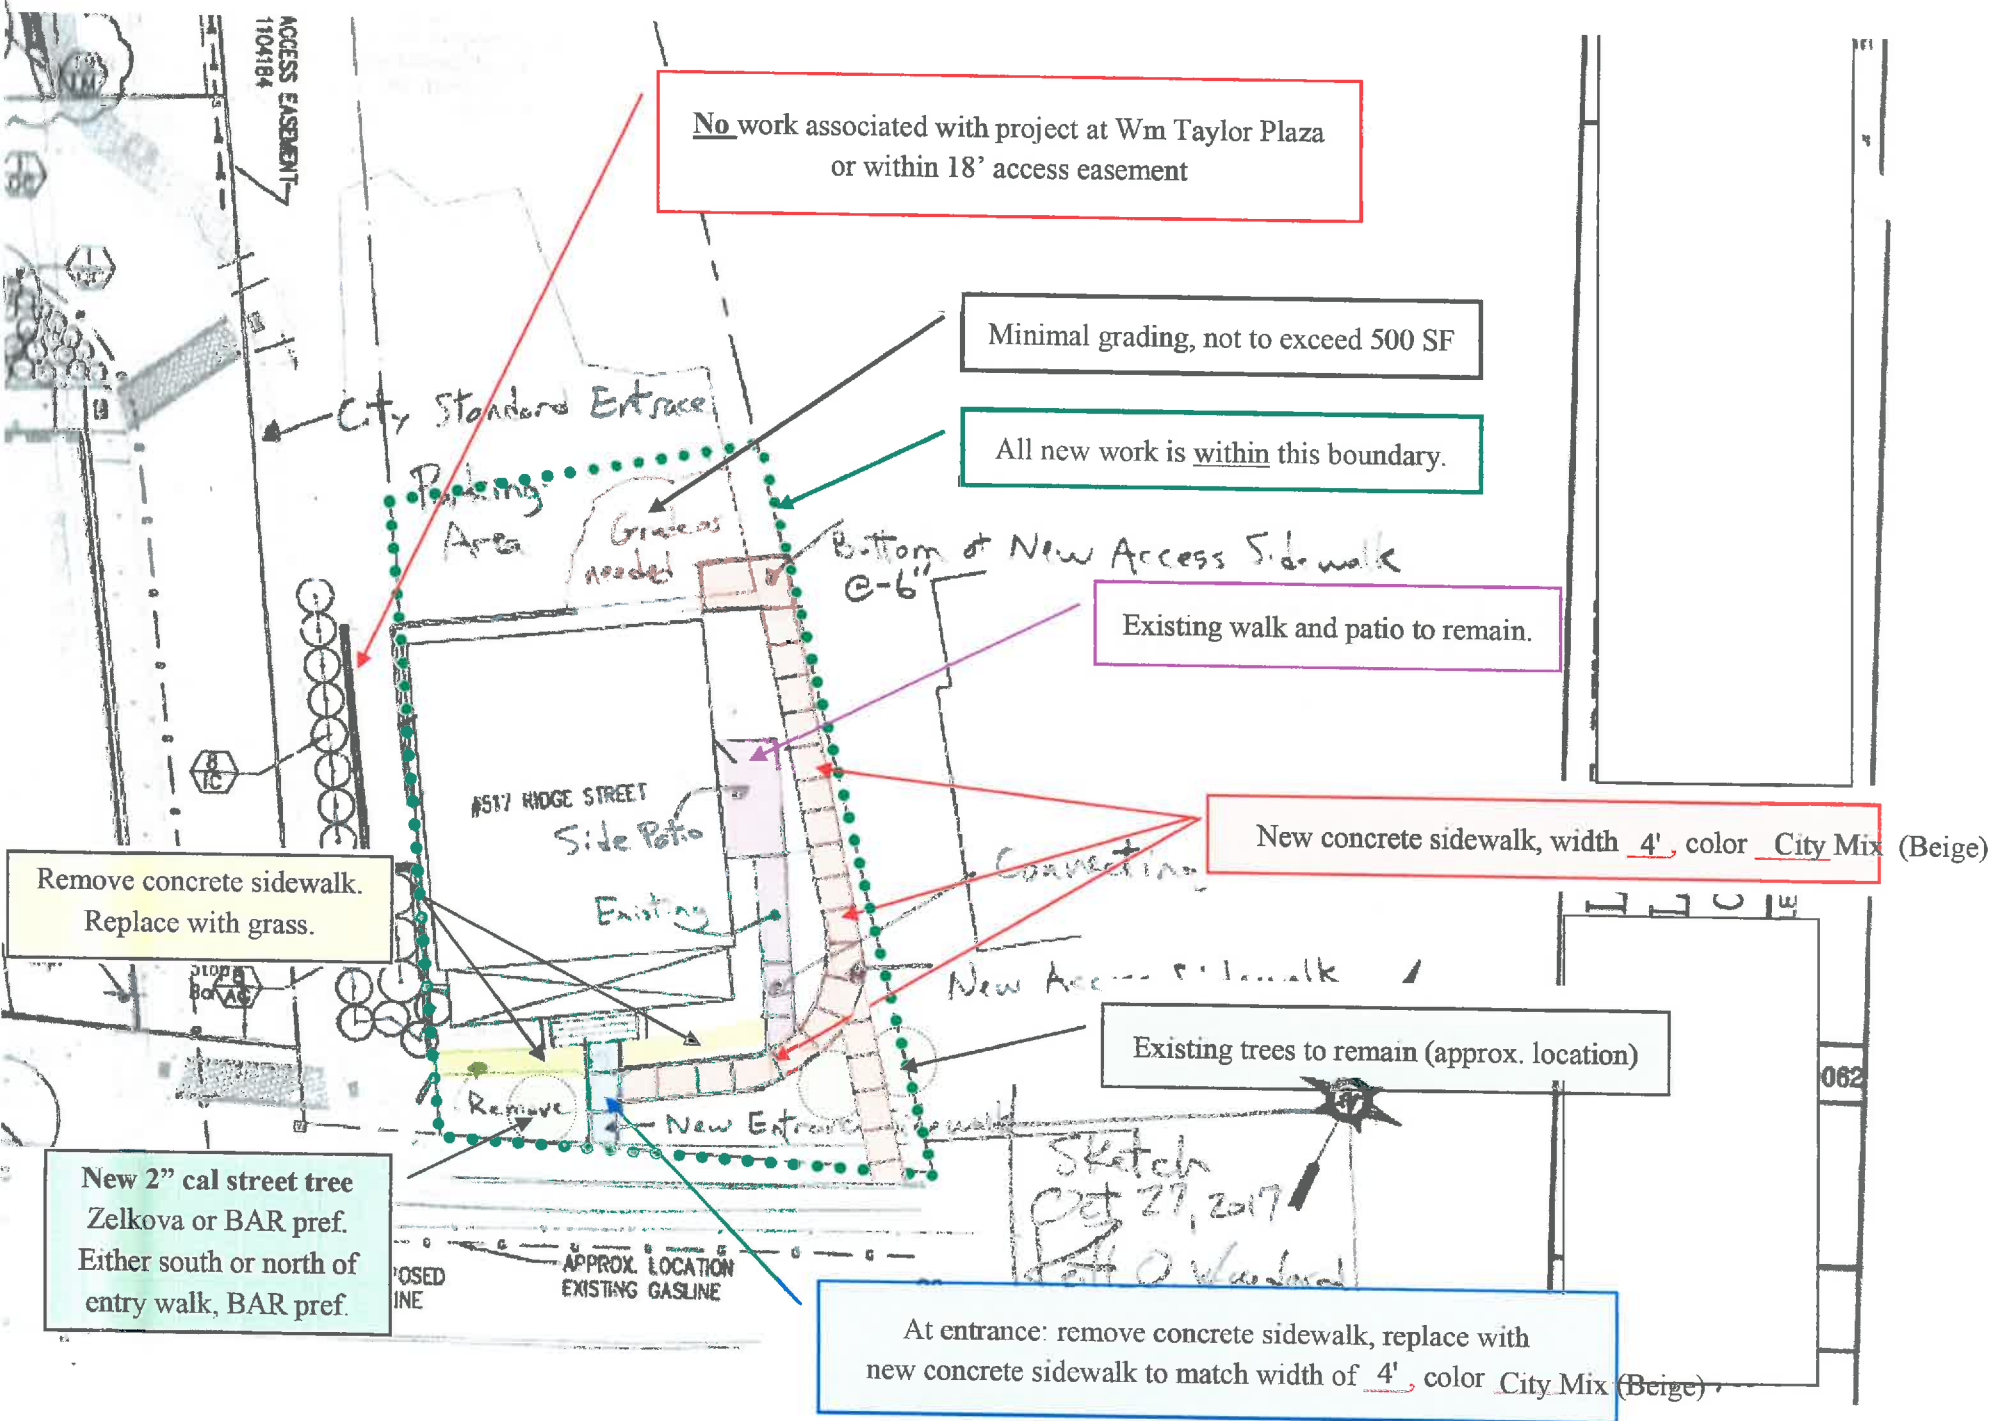 ACCESS EASEMENT
1104184
No work associated with project at Wm Taylor Plaza
or within 18’ access easement
Minimal grading, not to exceed 500 SF
City Standard Entrace
All new work is within this boundary.
Parking
Area
Grade as
needed
Bottom of New Access Sidewalk
@-6"
Existing walk and patio to remain.
8
IC
#517 RIDGE STREET
Side Patio
New concrete sidewalk, width 4', color City Mix (Beige)
Connecting
Remove concrete sidewalk.
Replace with grass.
Existing
New Access Sidewalk
Existing trees to remain (approx. location)
062
Remove
New Entrance Sidewalk
Sketch
Oct 27, 2017
New 2” cal street tree
Zelkova or BAR pref.
Either south or north of
entry walk, BAR pref.
G G G G G G G
APPROX. LOCATION
EXISTING GASLINE
'OSED
INE
At entrance: remove concrete sidewalk, replace with
new concrete sidewalk to match width of 4', color City Mix (Beige)